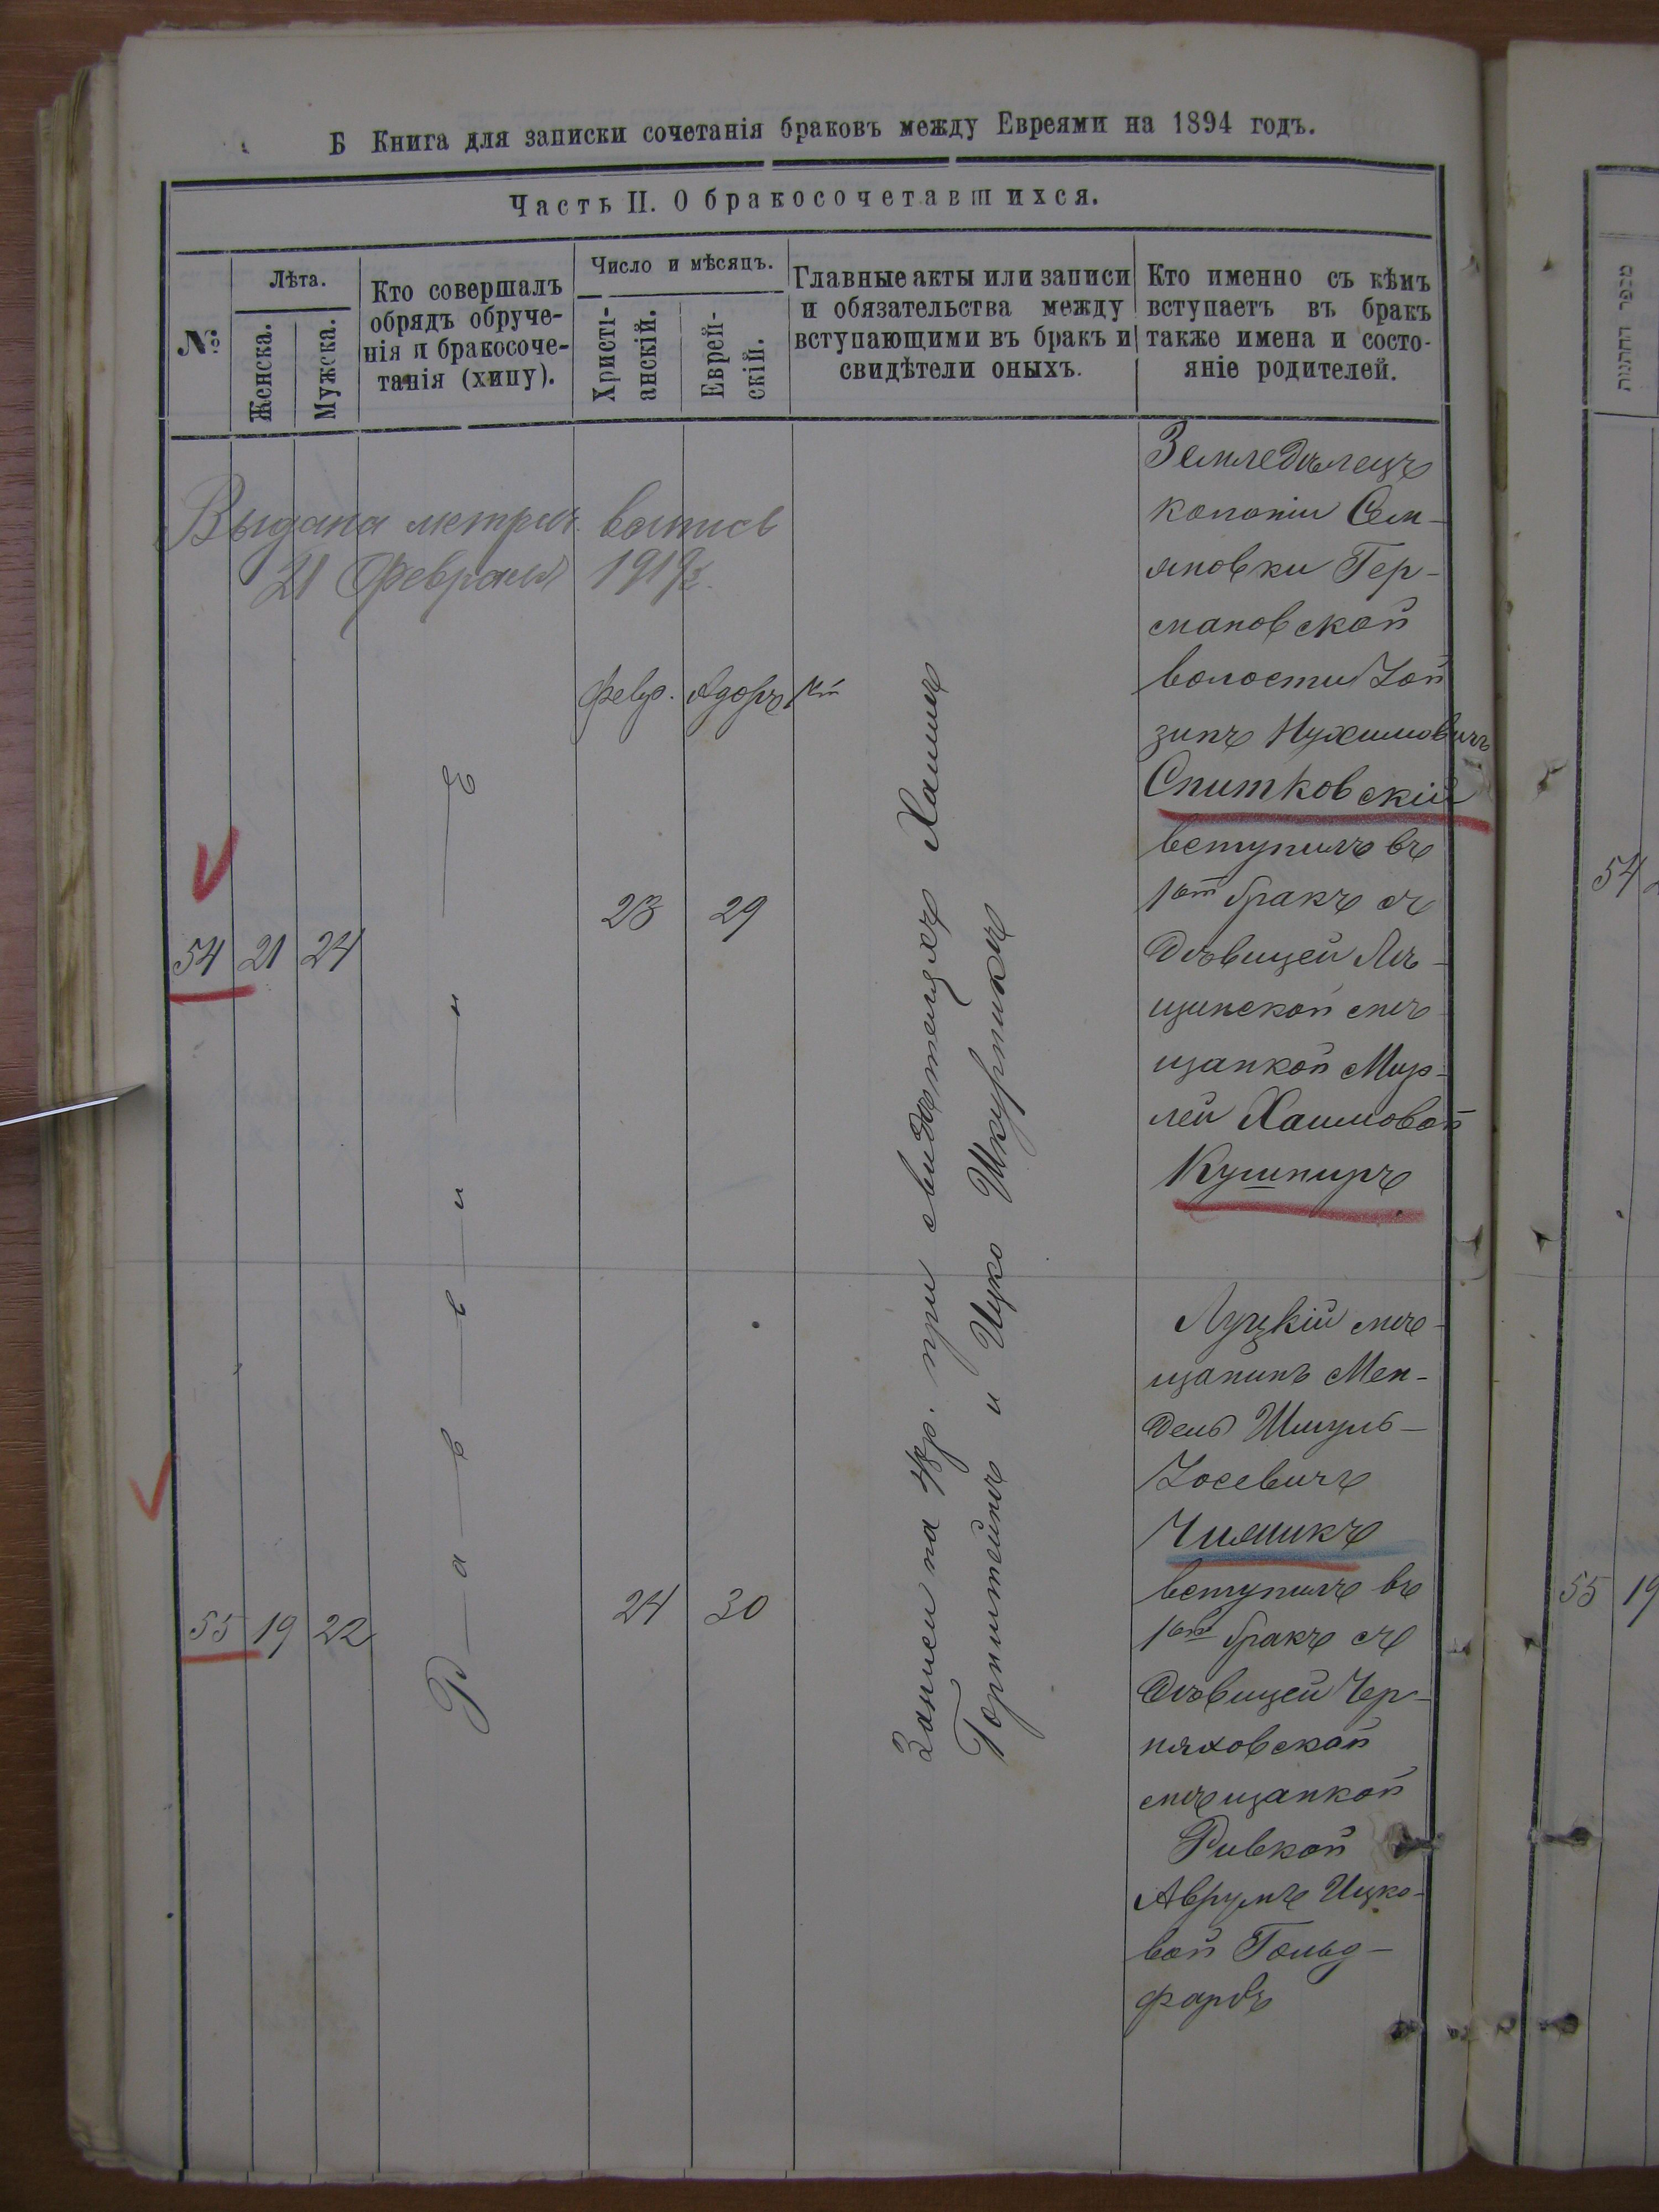 Б Книга для записки сочетанія браковъ между Евреями на 1894 годъ.
Часть II. О бракосочетавшихся.
№
Лѣта.
Женска.
Мужска.
Кто совершалъ
обрядъ обруче-
нія и бракосоче-
танія (хипу).
Число и мѣсяцъ.
Христі-
анскій.
Еврей-
скій.
Главные акты или записи
и обязательства между
вступающими въ бракъ и
свидѣтели оныхъ.
Кто именно съ кѣмъ
вступаетъ въ бракъ
также имена и состо-
яніе родителей.
Выдана метрич. выпись
21 Февраля
февр. Адоръ
54 21 24
23 29
Р а в в и н
Записи на 48р. при свидѣтеляхъ Хаимъ
Горнштейнъ и Ицко Шкурникъ
Земледѣлецъ
колоніи Сем-
яновки Гер-
мановской
волости Зой
зипъ Нухимовичъ
Спитковскій
вступилъ въ
1ый бракъ съ
дѣвицей Лѣ-
щинской мѣ
щанкой Мир-
лей Хаимовой
Кушниръ
55 19 22
24 30
Луцкій мѣ-
щанинъ Мен-
дель Шмуль-
Іосевичъ
вступилъ въ
1ый бракъ съ
дѣвицей Чер-
няховской
мѣщанкой
Ривкой
Аврумъ Ицко-
вой Гольд-
фарбъ
מספר החתונות
54
55 19